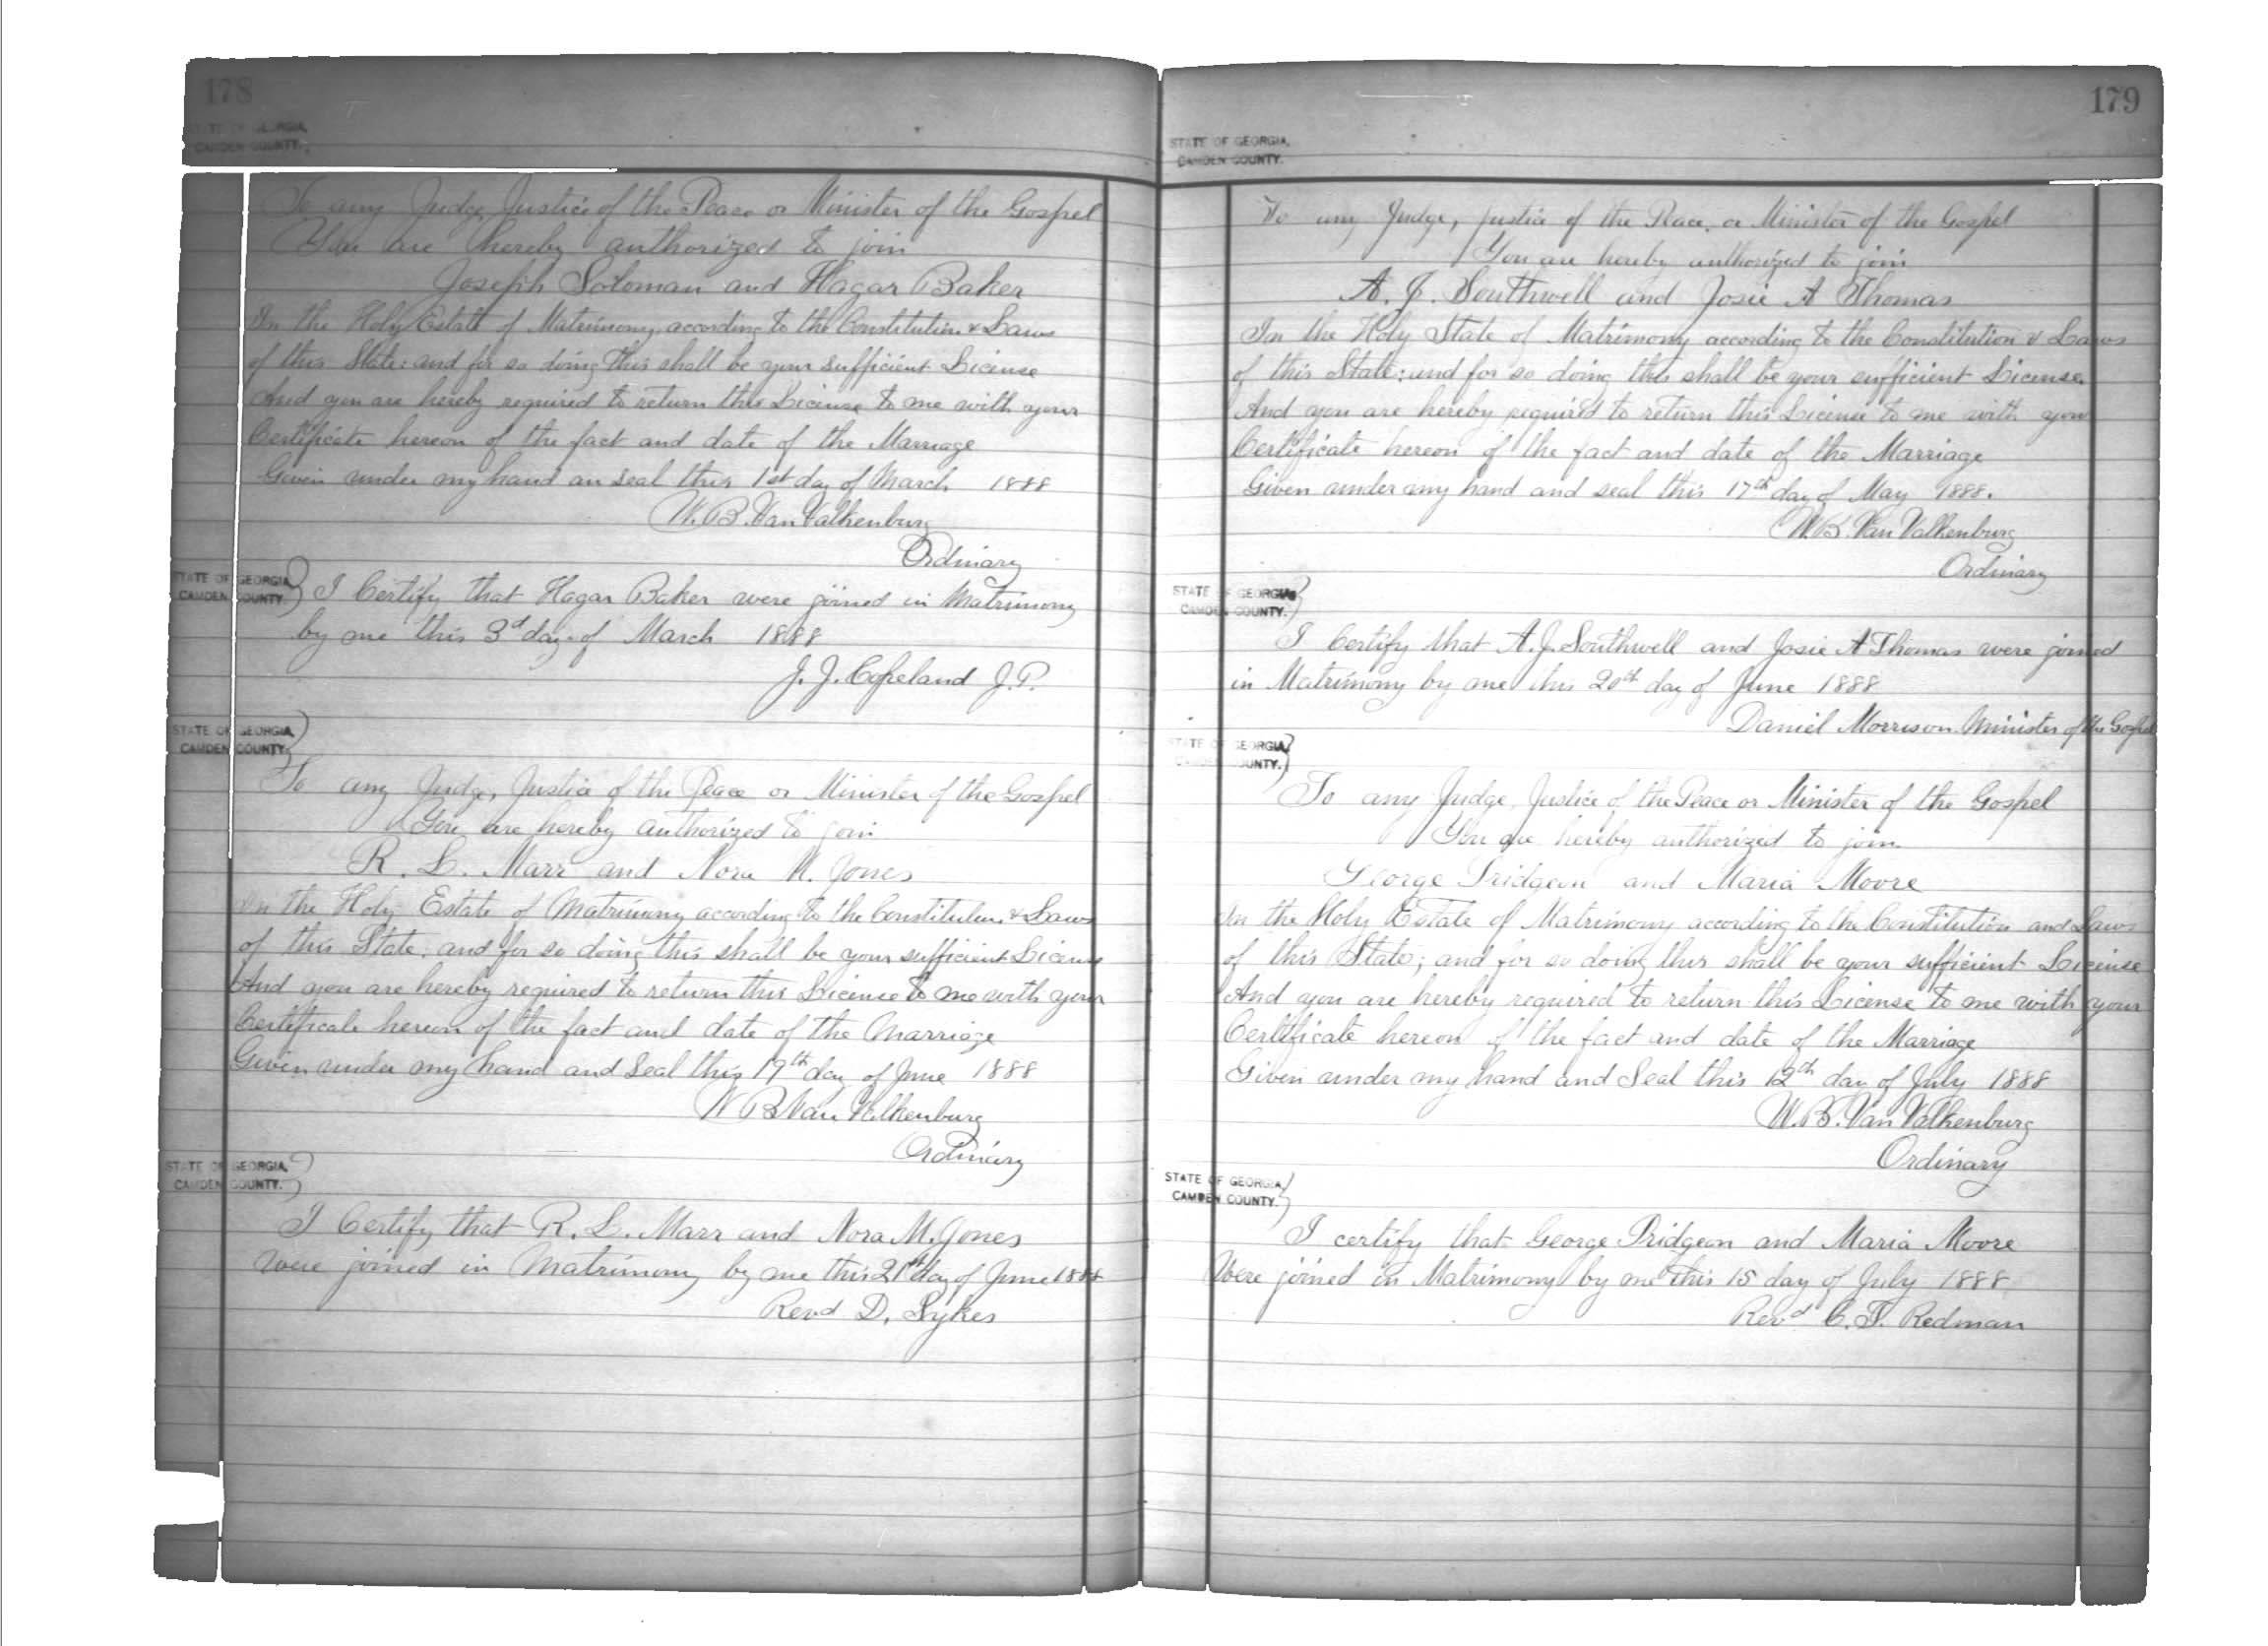 178
STATE OF GEORGIA,
CAMDEN COUNTY.
To any Judge, Justice of the Peace or Minister of the Gospel
You are hereby authorized to join
Joseph Soloman and Hagar Baker
In the Holy Estate of Matrimony, acording to the Constitution & Laws
of this State: and for so doing this shall be your sufficient License
And you are hereby required to return this License to me with your
Certificate hereon of the fact and date of the Marriage
Given under my hand an seal this 1st day of March 1888
W. B. Van Valkenburg
Ordinary
STATE OF GEORGIA,
CAMDEN COUNTY.
I Certify that Hagar Baker were joined in Matrimony
by me this 3d day of March 1888
J. J. Copeland J. P.
STATE OF GEORGIA,
CAMDEN COUNTY.
To any Judge, Justice of the Peace or Minister of the Gospel
You are hereby authorized to join
R. L. Marr and Nora M. Jones
In the Holy Estate of Matrimony according to the Constitution & Laws
of this State; and for so doing this shall be your sufficient License
And you are hereby required to return this License to me with your
Certificate hereon of the fact and date of the Marriage
Given under my hand and Seal this 19th day of June 1888
W B Van Valkenburg
Ordinary
STATE OF GEORGIA,
CAMDEN COUNTY.
I Certify that R. L. Marr and Nora M. Jones
were joined in Matrimony by me this 21st day of June 1888
Revd D. Sykes
179
STATE OF GEORGIA,
CAMDEN COUNTY.
To any Judge, Justice of the Peace, or Minister of the Gospel
You are hereby authorized to join
A. J. Southwell and Josie A Thomas
In the Holy State of Matrimony according to the Constitution & Laws
of this State: and for so doing this shall be your sufficient License.
And you are hereby required to return this License to me with your
Certificate hereon of the fact and date of the Marriage
Given under my hand and seal this 17th day of May 1888.
W. B. Van Valkenburg
Ordinary
STATE OF GEORGIA,
CAMDEN COUNTY.
I Certify that A. J. Southwell and Josie A Thomas were joined
in Matrimony by me this 20th day of June 1888
Daniel Morrison Minister of the Gospel
STATE OF GEORGIA,
COUNTY.
To any Judge, Justice of the Peace or Minister of the Gospel
You are hereby authorized to join
George Pridgeon and Maria Moore
In the Holy Estate of Matrimony according to the Constitution and Laws
of this State; and for so doing this shall be your sufficient License
And you are hereby required to return this License to me with your
Certificate hereon of the fact and date of the Marriage
Given under my hand and Seal this 12th day of July 1888
W. B. Van Valkenburg
Ordinary
STATE OF GEORGIA,
CAMDEN COUNTY.
I certify that George Pridgeon and Maria Moore
Were joined in Matrimony by me this 15 day of July 1888
Revd C. T. Redman